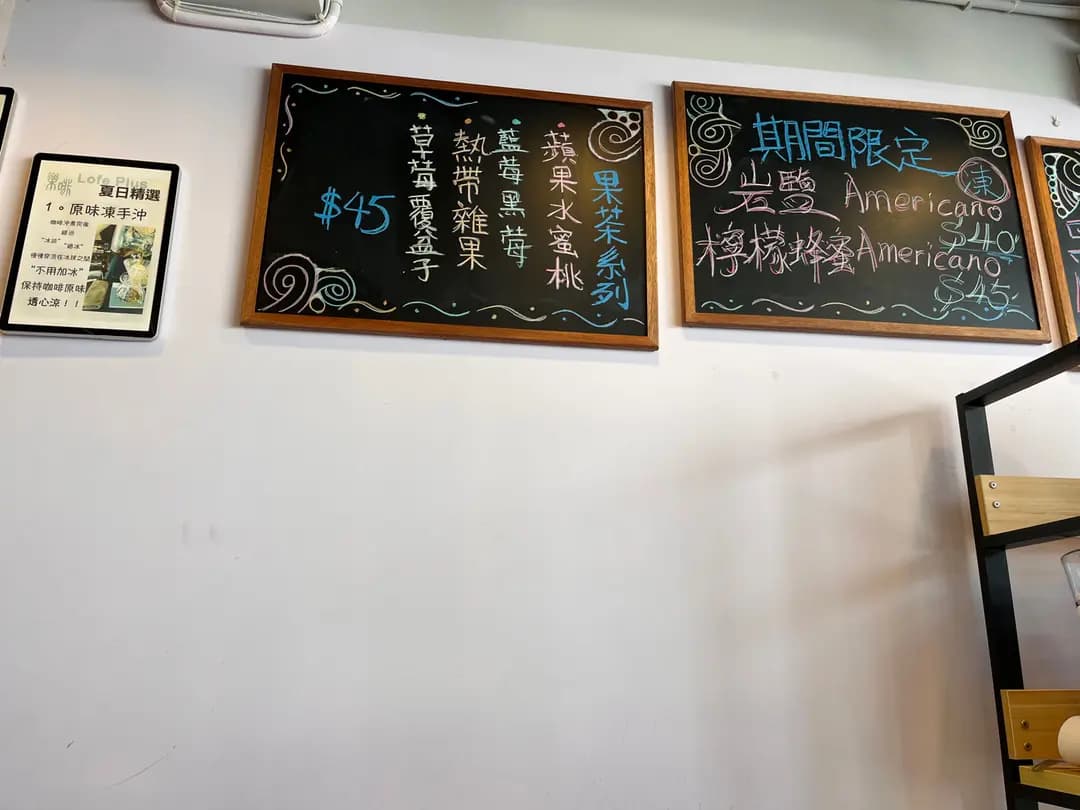 樂啡 Lofe Plus
夏日精選
1。原味凍手沖
咖啡沖煮完後
經過
"冰談" "過冰"
慢慢穿流在冰球之間
"不用加冰"
保持咖啡原味
透心涼!!
果茶系列
蘋果水蜜桃
藍莓黑莓
熱帶雜果
草莓覆盆子
$45
期間限定
凍
岩鹽 Americano
$40
檸檬蜂蜜Americano
$45